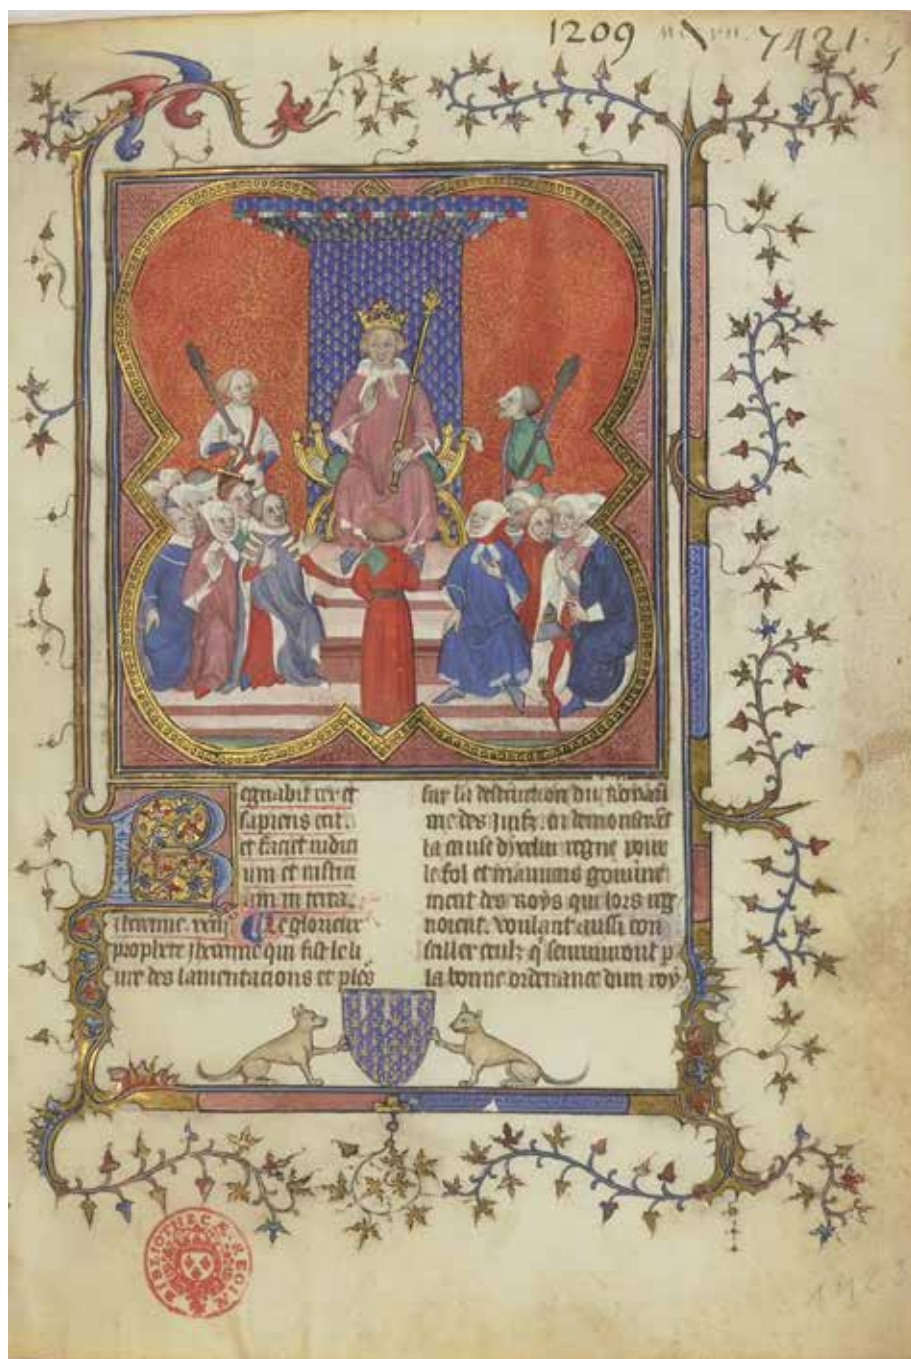 1209
7421.
egnabit rex et
sapiens erit.
et faciet iudici
um et iusticiam
am in terra.
Jheremie. xxiij Le glorieux
prophete Jheremie qui fist le li
ure des lamentacions et ples
sur la destruction du Royau
me des Juifz. en demonstrant
la cause dycelui regne pour
le fol et mauuais gouuerne
ment des Roys qui lors reg
noient. voulant aussi con
seiller ceulx q̉ seuuiuront p
la bonne ordenance dun roy
BIBLIOTHECÆ REGIÆ
1423